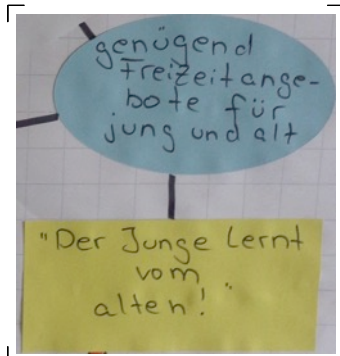 genügend
Freizeitange-
bote für
jung und alt
"Der Junge lernt
vom
alten!"